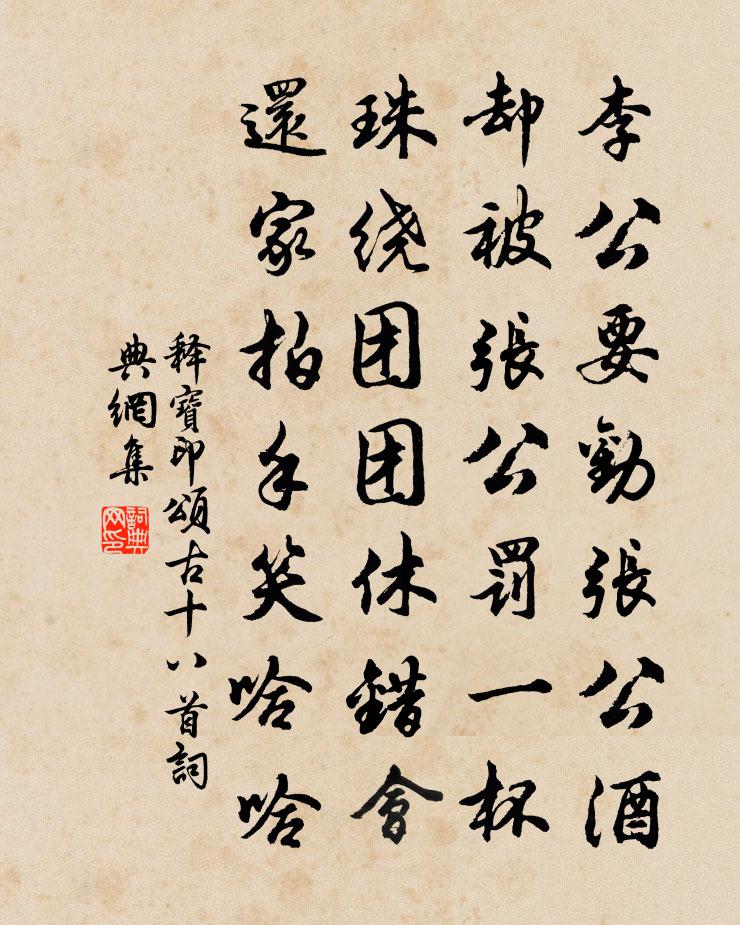 李公要勸張公酒
却被張公罰一杯
珠绕团团休錯會
還家拍手笑哈哈
释寶印頌古十八首詞
典網集
詞典网印